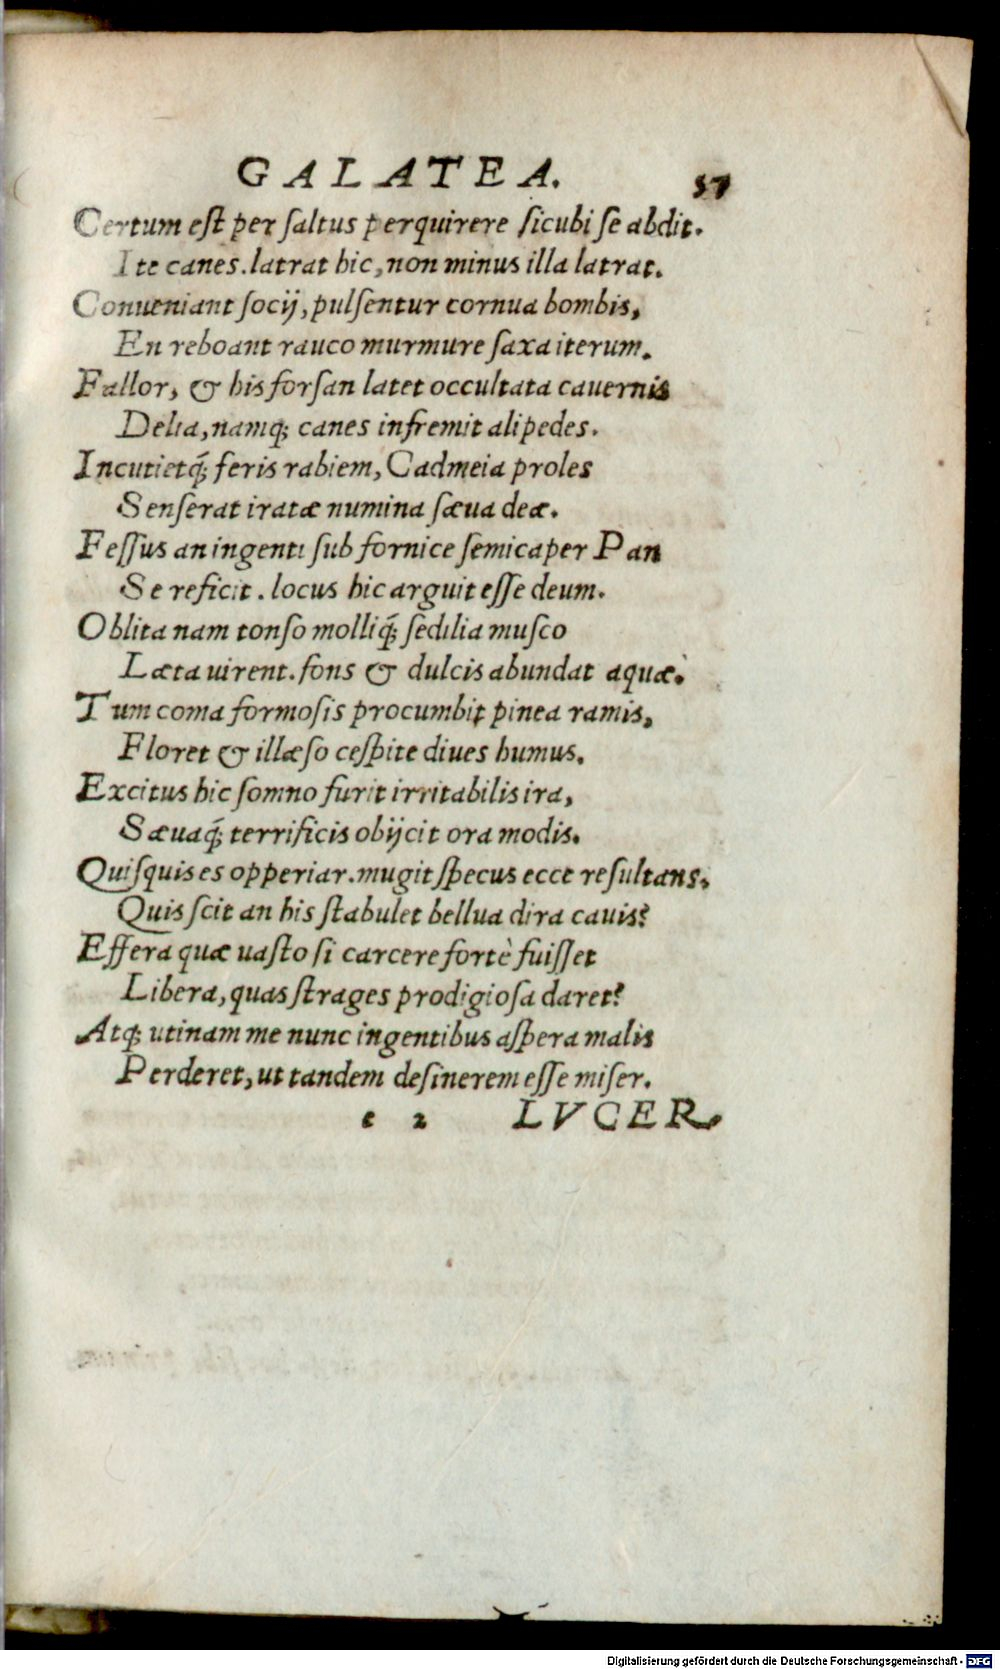 GALATEA. 57
Certum est per saltus perquirere sicubi se abdit.
Ite canes. latrat hic, non minus illa latrat.
Conueniant socij, pulsentur cornua bombis,
En reboant rauco murmure saxa iterum.
Fallor, & his forsan latet occultata cauernis
Delia, namq; canes infremit alipedes.
Incutietq́; feris rabiem, Cadmeia proles
Senserat iratæ numina sæua deæ.
Fessus an ingenti sub fornice semicaper Pan
Se reficit. locus hic arguit esse deum.
Oblita nam tonso molliq́; sedilia musco
Læta uirent. fons & dulcis abundat aquæ.
Tum coma formosis procumbit pinea ramis,
Floret & illæso cespite diues humus.
Excitus hic somno furit irritabilis ira,
Sæuaq́; terrificis obijcit ora modis.
Quisquis es opperiar. mugit specus ecce resultans.
Quis scit an his stabulet bellua dira cauis?
Effera quæ uasto si carcere fortè fuisset
Libera, quas strages prodigiosa daret?
Atq; utinam me nunc ingentibus aspera malis
Perderet, ut tandem desinerem esse miser.
e 2 LVCER
Digitalisierung gefördert durch die Deutsche Forschungsgemeinschaft - DFG